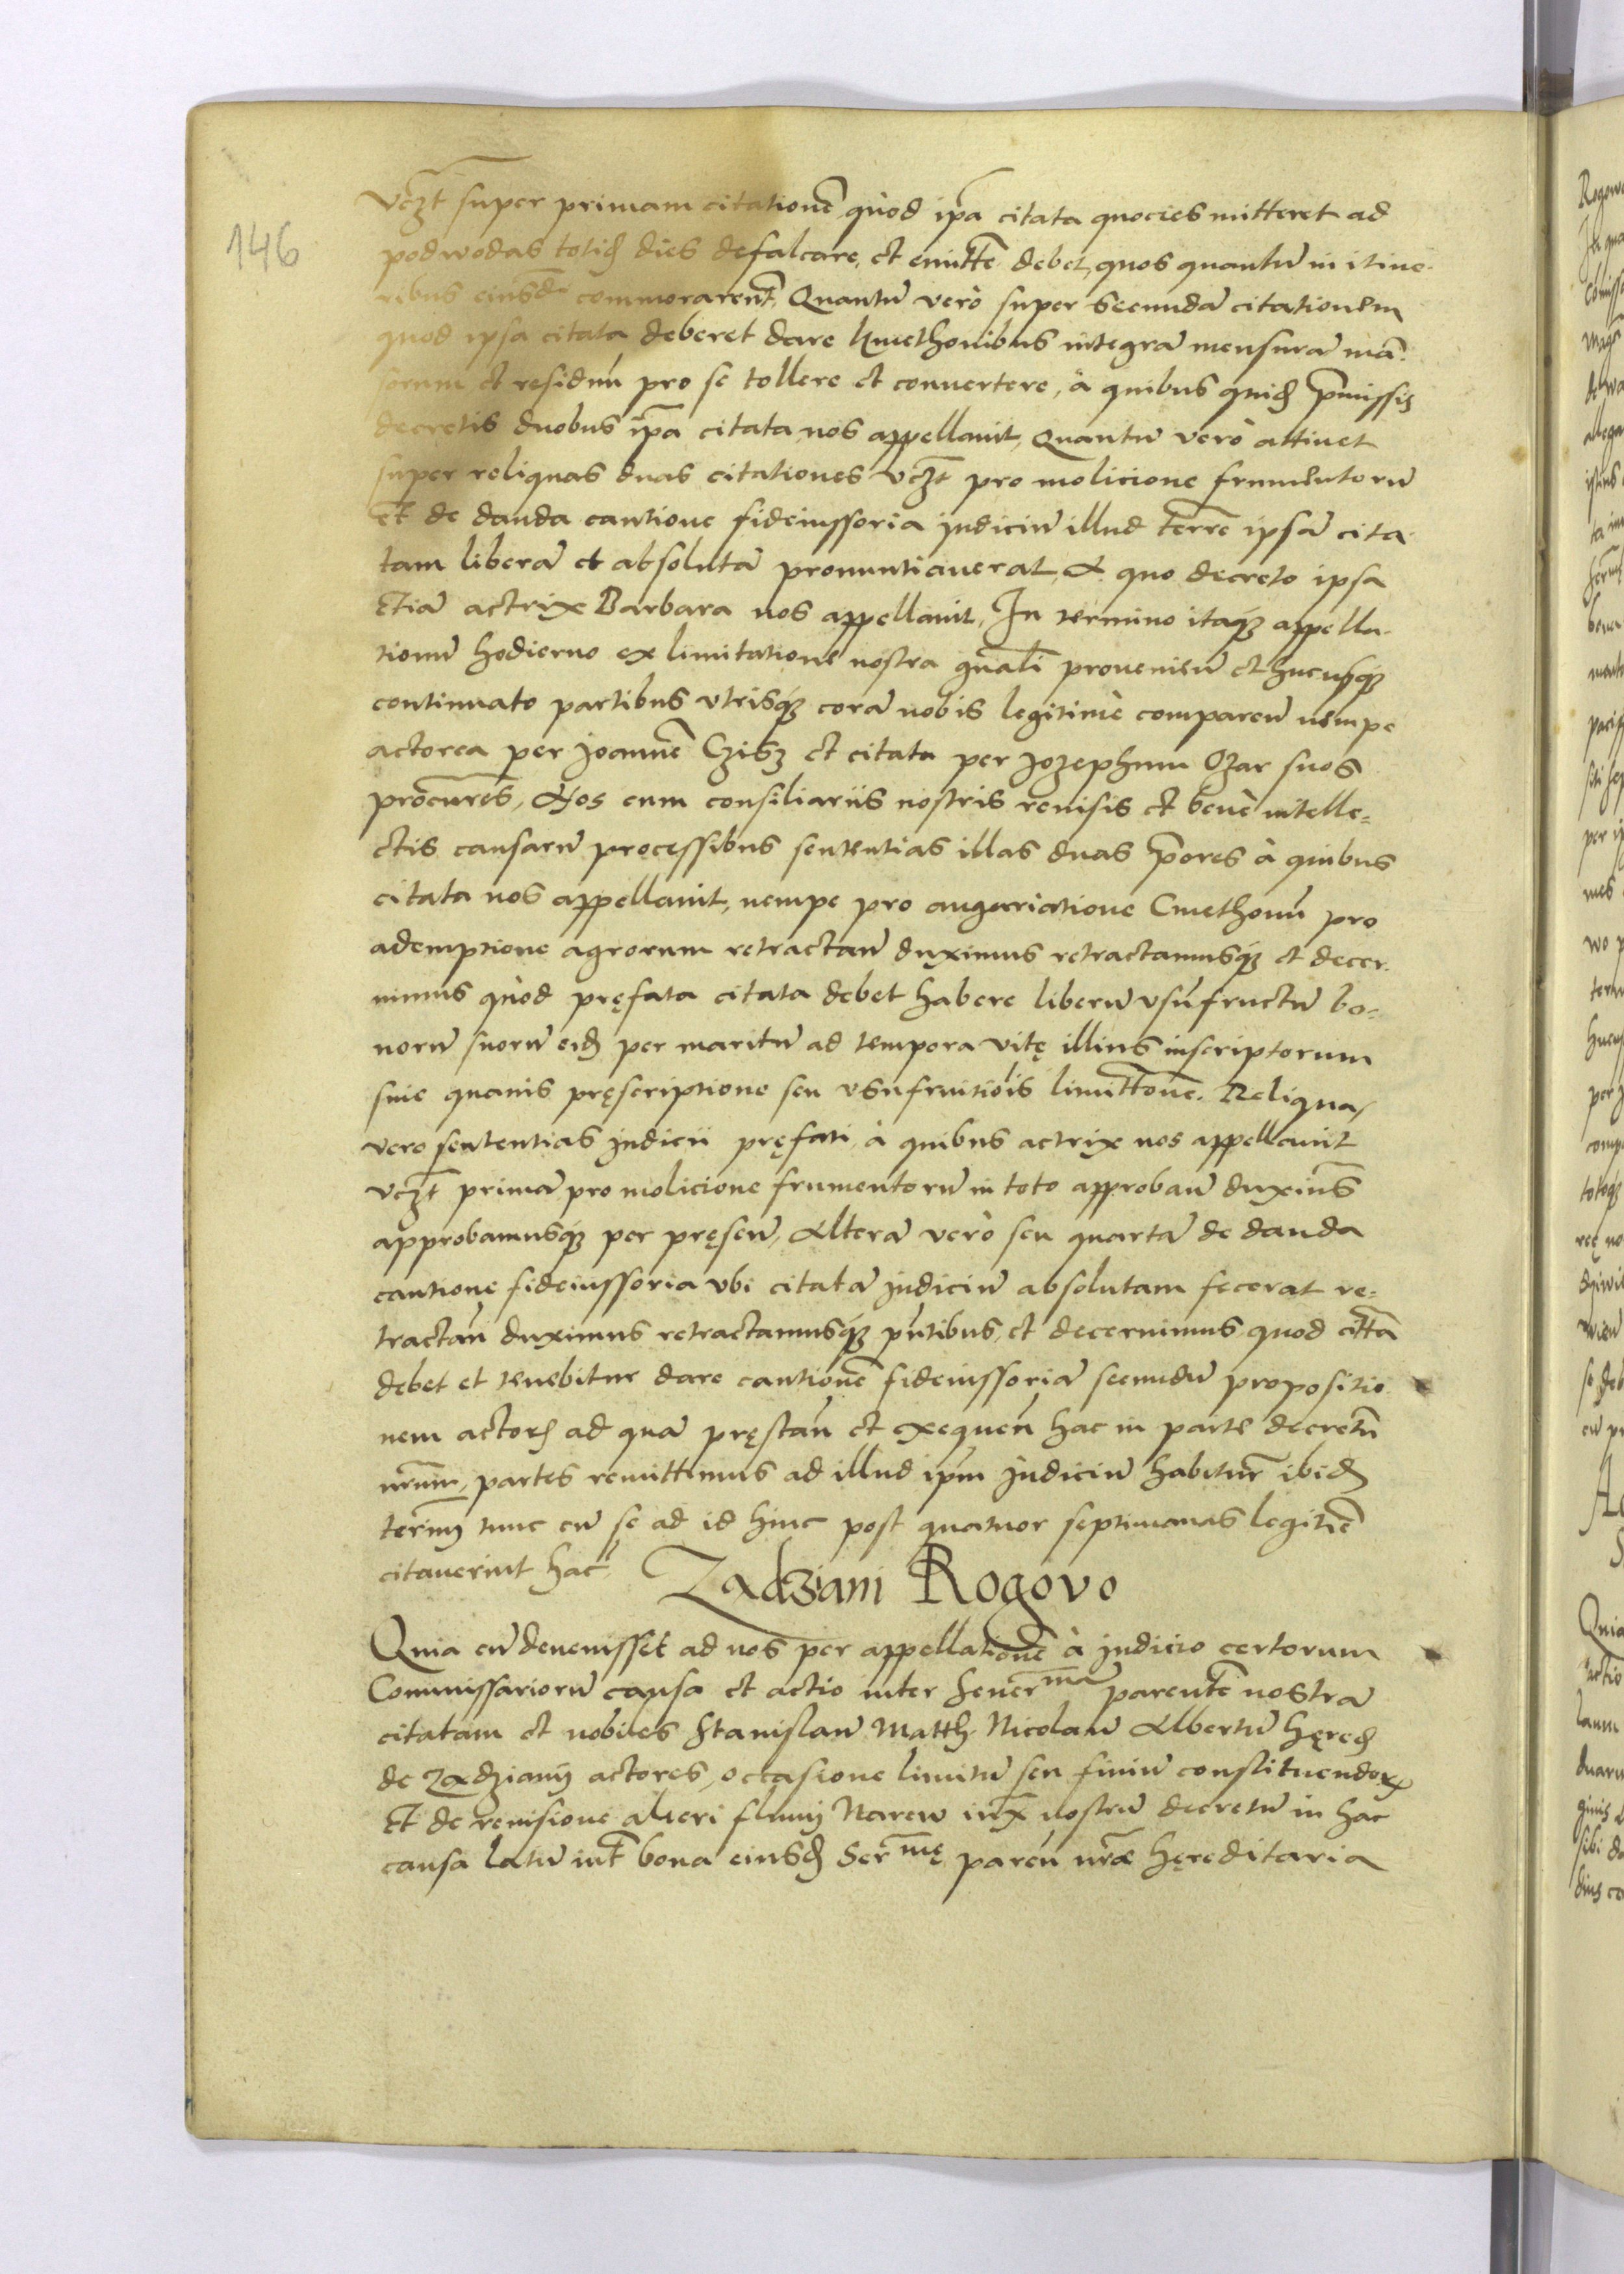 146
vczt super primam citationẽ quòd ip̃a citata quocies mitteret ad
podwodas totid dies defalcare, et emittẽ debet, quos quantũ in itine-
ribus eiusd commorarent̃, Quantũ verò super secundã citationem
quod ipsa citata deberet dare kmethonibus integrã mensurã mã-
sorum et residuũ pro se tollere et conuertere, à quibus quid p̃missis
decretis duobus ip̃a citata nos appellauit, Quantũ verò attinet
super reliquas duas citationes vczt pro molicione frumentorũ
et de danda cautione fideiussoria judiciũ illud terrẽ ipsã cita-
tam liberã et absolutã pronuntiauerat, A quo decreto ipsa
etiã actrix Barbara nos appellauit, In termino itaq̃ appella-
tionũ hodierno ex limitatione nostra gñali prouenieñ et hucusq̃
continuato partibus vtrisq̃ corã nobis legitimè compareñ nempe
actorea per Joannẽ Czisz et citata per Jozephum Ozar suos
procũres, Nos cum consiliariis nostris reuisis et benè intelle=
ctis causarũ processibus sententias illas duas p̃ores à quibus
citata nos appellauit, nempe pro angariatione Cmethonũ pro
ademptione agrorum retractañ duximus retractamusq̃ et decer-
nimus quòd pręfata citata debet habere liberũ vsũfructũ bo=
norũ suorũ eid per maritũ ad tempora vitę illius inscriptorum
sine quauis pręscriptione seu vsufruitiois limittõne. Reliquas
vero sententias judicii pręfati à quibus actrix nos appellauit
vczt primã pro molicione frumentorũ in toto approbañ duxim̃s
approbamusq̃ per pręseñ, Alterã verò seu quartã de danda
cautione fideiussoria vbi citatã judiciũ absolutam fecerat re=
tractañ duximus retractamusq̃ pñtibus, et decernimus quod citt̃a
debet et tenebitur dare cautionẽ fideiussoriã secundũ propositio-
nem actor ad quã pręstañ et exequeñ hac in parte decretũ
nr̃um, partes remittimus ad illud ip̃m judiciũ habitur̃ ibid
terminũ tunc cũ se ad id hinc post quatuor septimanas legitimẽ
citauerint hac
Zadziani Rogovo
Quia cũ deuenisset ad nos per appellationẽ à judicio certorum
Commissariorũ causa et actio inter Seuer̃mã parentẽ nostrã
citatam et nobiles Stanislaũ Matth. Nicolaũ Albertũ hęred
de Zadzianij actores, occasione limitũ seu finiũ constituendor
Et de reuisione aluei flumij Narew iux̃ nostrũ decretũ in hac
causa latũ int̃ bona eiusd Ser̃mę pareñ nr̃æ hęreditaria